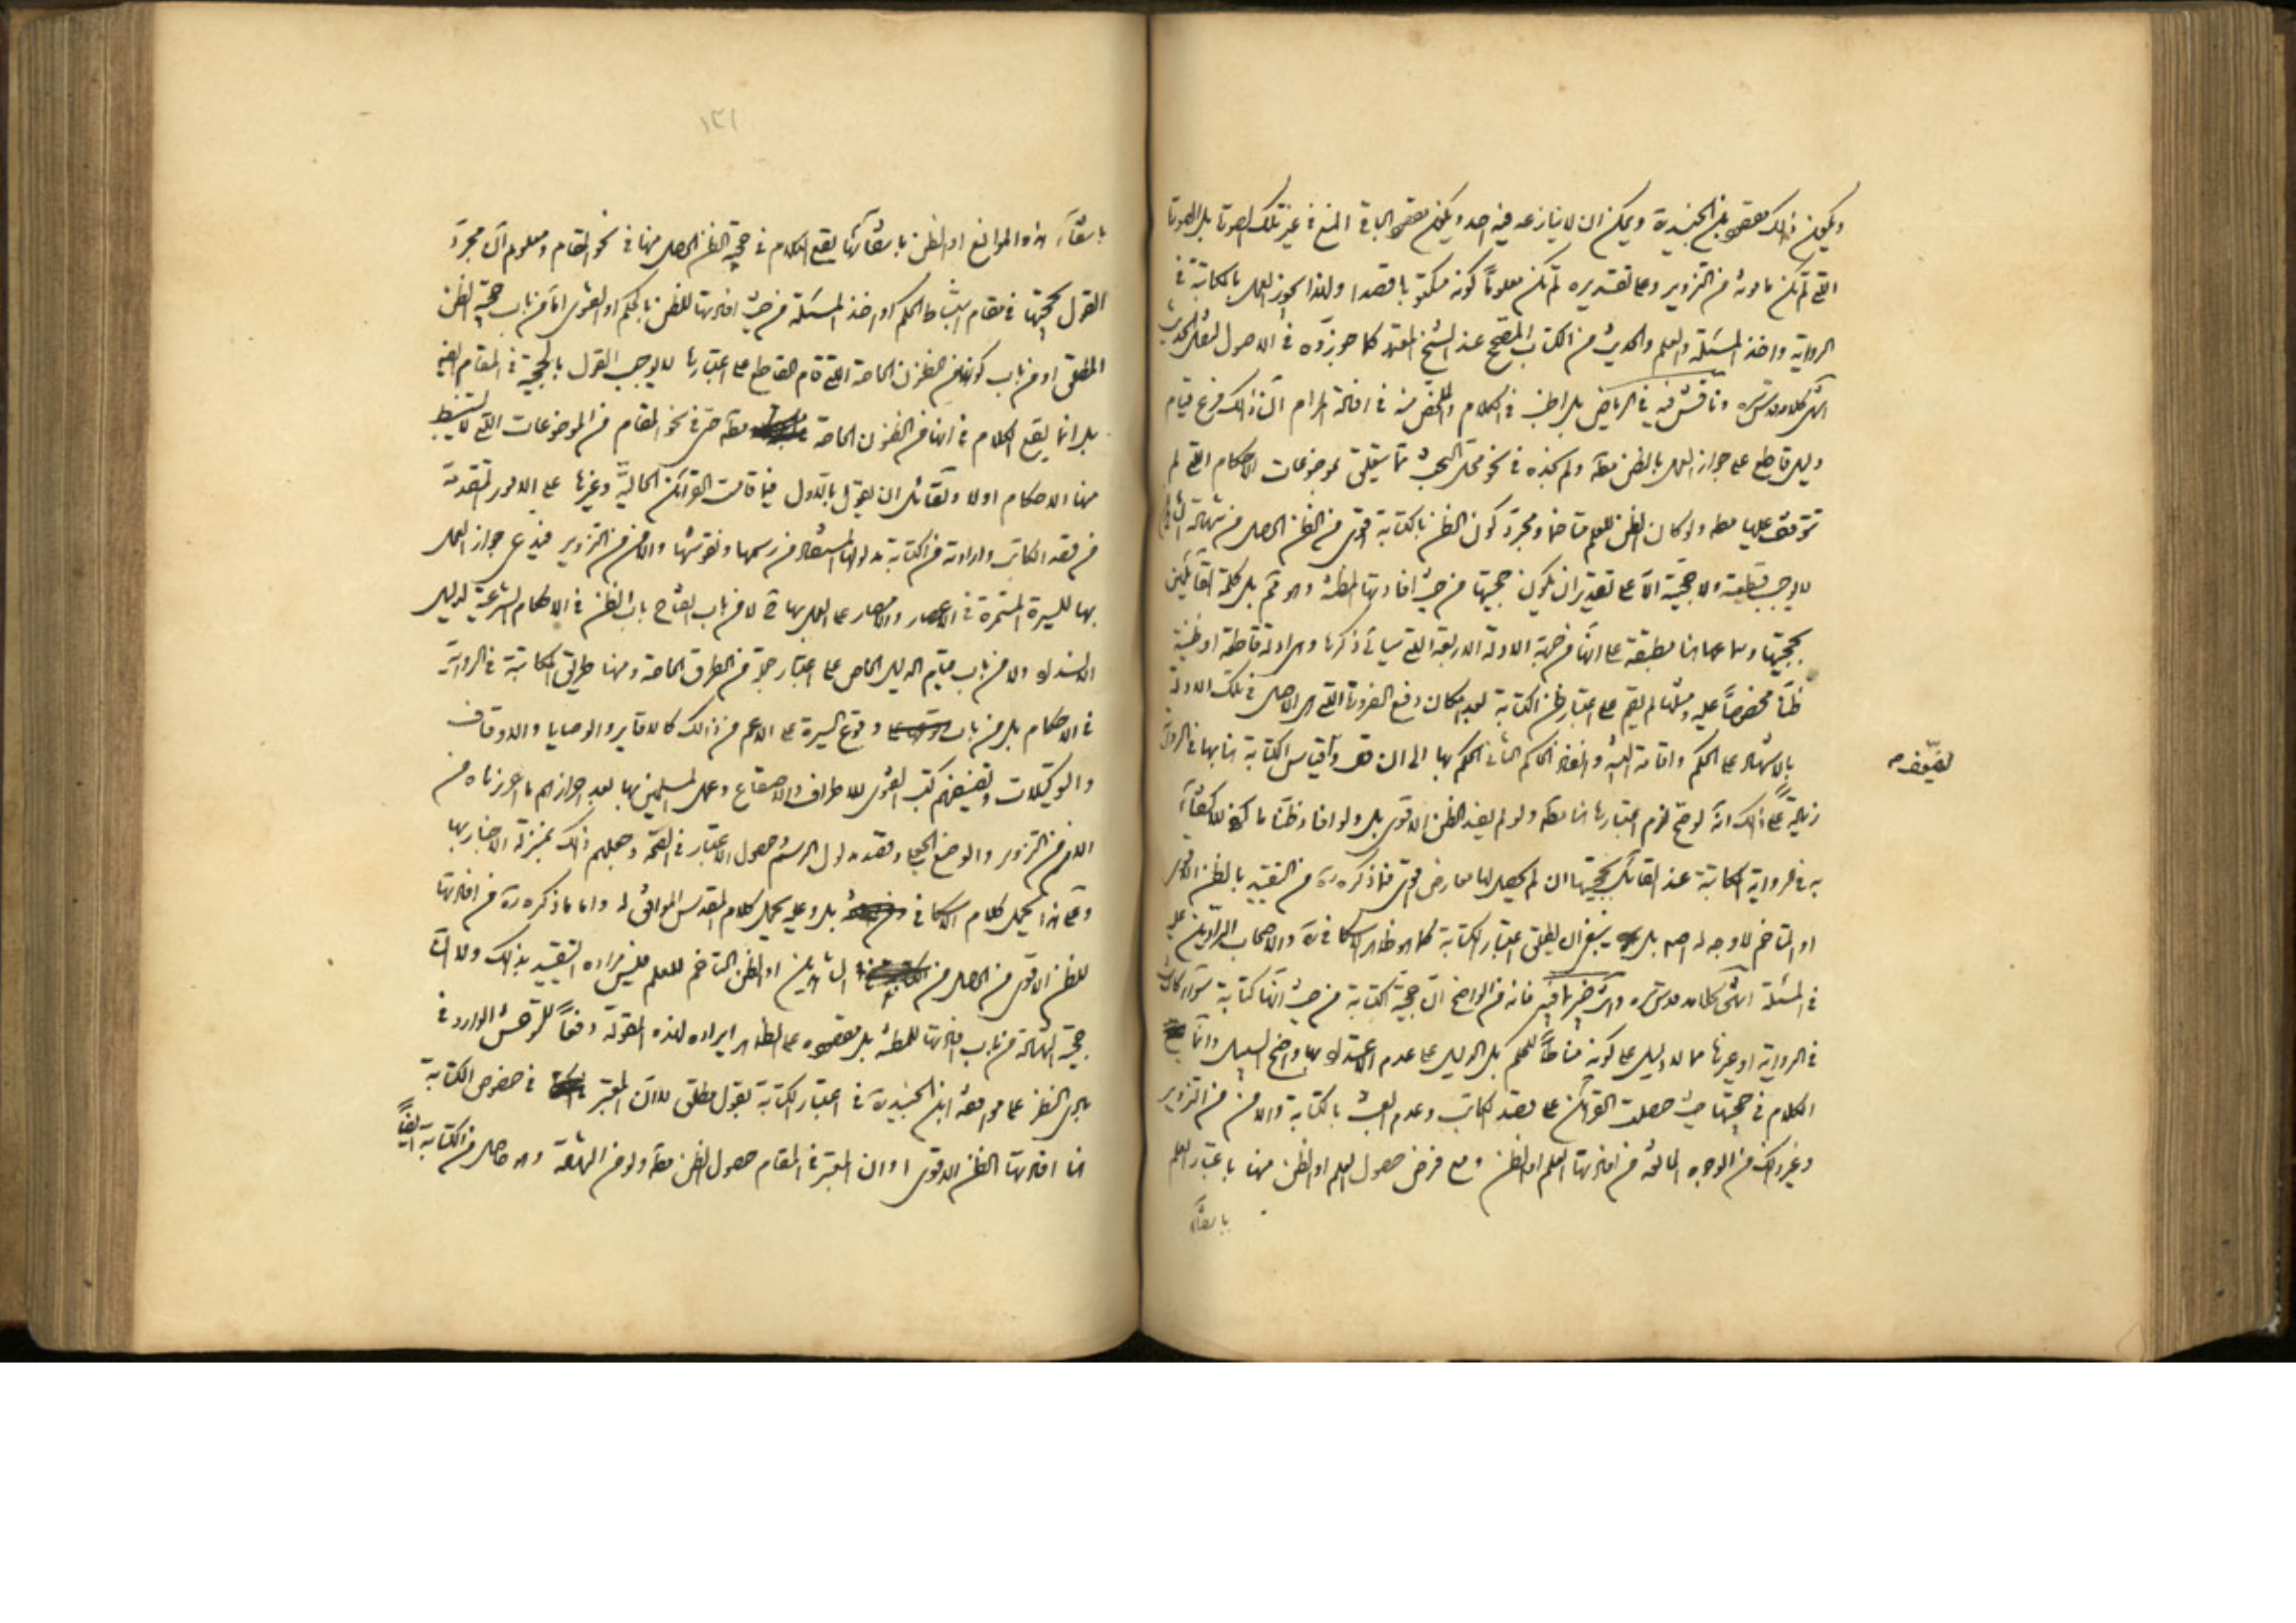 ويكون ذلك مقصود ابن الجنيد ويمكن ان لا ينازعه فيه احد ويكون مقصود الباقي المنع في غير تلك الصورة بل الصورة
التي لم تكن مأمونة من التزوير وعلى تقديره لم تكن معلوماً كونه مكتوبا قصدا ولهذا يجوز العمل بالمكاتبة في
الرواية واخذ المسئلة والعلم والحديث من الكتاب المصحح عند الشيخ المعتمد كما جوزوه في الاصول
انتهى كلامه قدس سره وناقش فيه في الرياض بل اطنب في الكلام والملخص منه في افادة المرام ان ذلك فرع قيام
دليل قاطع على جواز العمل بالظن مطلقا ولم نجده في نحو محل البحث مما يتعلق بموضوعات الاحكام التي لم
تتوقف عليها مطلقا ولو كان الظن للعلم متاخما ومجرد كون الظن بالكتابة اقوى من الظن الحاصل من شهادة
لا يوجب قطعية ولا حجية الا على تقدير ان يكون حجيتها من حيث افادتها المظنة وهو تم بل كلمة القائلين
بحجيتها وسماعها هنا مطبقة على انها من جهة الادلة الاربعة التي سيأتي ذكرها وهي ادلة قاطعة او ظنية
ظناً مخصوصاً عليه ومثلها لم يقم على اعتبار ظن الكتابة بعد امكان دفع الضرورة التي هي الاصل في تلك الادلة
بالاشهاد على الحكم واقامة البينة وانفاذ الحاكم الثاني الحكم بها الى ان قال وقياس الكتابة هنا بها في الرواية
لضعفه
زيادة على ذلك انه لو صح لزم اعتبارها هنا مطلقا ولو لم يفد الظن الاقوى بل ولو افاد ظناً ما للاكتفاء
به في الرواية المكاتبة عند القائل بحجيتها ان لم يحصل لها معارض اقوى فما ذكره ره من التقييد بالظن الاقوى
او المتاخم لا وجه له اصلا بل ينبغي ان يطلق اعتبار الكتابة كما هو ظاهر الاسكافي ره والاصحاب الرادين عليه
في المسئلة انتهى كلامه قدس سره وانت خبير بما فيه فانه من الواضح ان حجية الكتابة من حيث انها كتابة سواء كانت
في الرواية او غيرها مما لا دليل على كونه مناطاً للحكم بل الدليل على عدم الاعتداد بها واضح السبيل وانما
الكلام في حجيتها حيث حصلت القرائن على قصد الكاتب وعدم العبث بالكتابة والامن من التزوير
وغير ذلك من الوجوه المانعة من افادتها العلم او الظن ومع فرض حصول العلم او الظن منها باعتبار العلم
بانتفاء
١٢١
بانتفاء هذه الموانع او الظن بانتفائها يقع الكلام في حجية الظن الحاصل منها في نحو المقام ومعلوم ان مجرد
القول بحجيتها في مقام استنباط الحكم او اخذ المسئلة من حيث افادتها للظن بالحكم او الفتوى اما من باب حجية الظن
المطلق او من باب كونها من الظنون الخاصة التي قام القاطع على اعتبارها لا يوجب القول بالحجية في المقام ايضا
بل انما يقع الكلام في انها من الظنون الخاصة مطلقا حتى في نحو المقام من الموضوعات التي لا يستنبط
منها الاحكام اولا ولقائل ان يقول بالاول فيما قامت القرائن الحالية وغيرها على الامور المتقدمة
من قصد الكاتب وارادته من الكتابة مدلولها المستفاد من رسمها ونقوشها والامن من التزوير فيدعى جواز العمل
بها للسيرة المستمرة في الاعصار والامصار على العمل بها لا من باب انفتاح باب الظن في الاحكام الشرعية لدليل
الانسداد ولا من باب قيام الدليل الخاص على اعتبار جملة من الطرق الخاصة ومنها طريق المكاتبة في الرواية
في الاحكام بل من باب وقوع السيرة على الاعم من ذلك كالاقارير والوصايا والاوقاف
والتوكيلات وتصنيفهم كتب الفتوى للاطراف والاصقاع وعمل المسلمين بها بعد احرازهم ما احرزناه من
الامن من التزوير والوضع الجعلي وقصد مدلول الرسم وحصول الاعتبار في الصحة وجعلهم ذلك بمنزلة الاخبار بها
وعلى هذا يحمل كلام الاسكافي بل وعليه يحمل كلام المقدس الموافق له واما ما ذكره ره من افادتها
للظن الاقوى من الحاصل من الشاهدين او الظن المتاخم للعلم فليس مراده التقييد بذلك ولا ان
حجية الشهادة من باب افادتها للمظنة بل مقصوده على الظاهر ايراده لهذه المقولة دفعاً للوحش الوارد في
بادي النظر على موافقة ابن الجنيد ره في اعتبار الكتابة بقول مطلق لا ان المعتبر في خصوص الكتابة
هنا افادتها الظن الاقوى او ان المعتبر في المقام حصول الظن مطلقا ولو من الشهادة وهو حاصل من الكتابة ايضاً